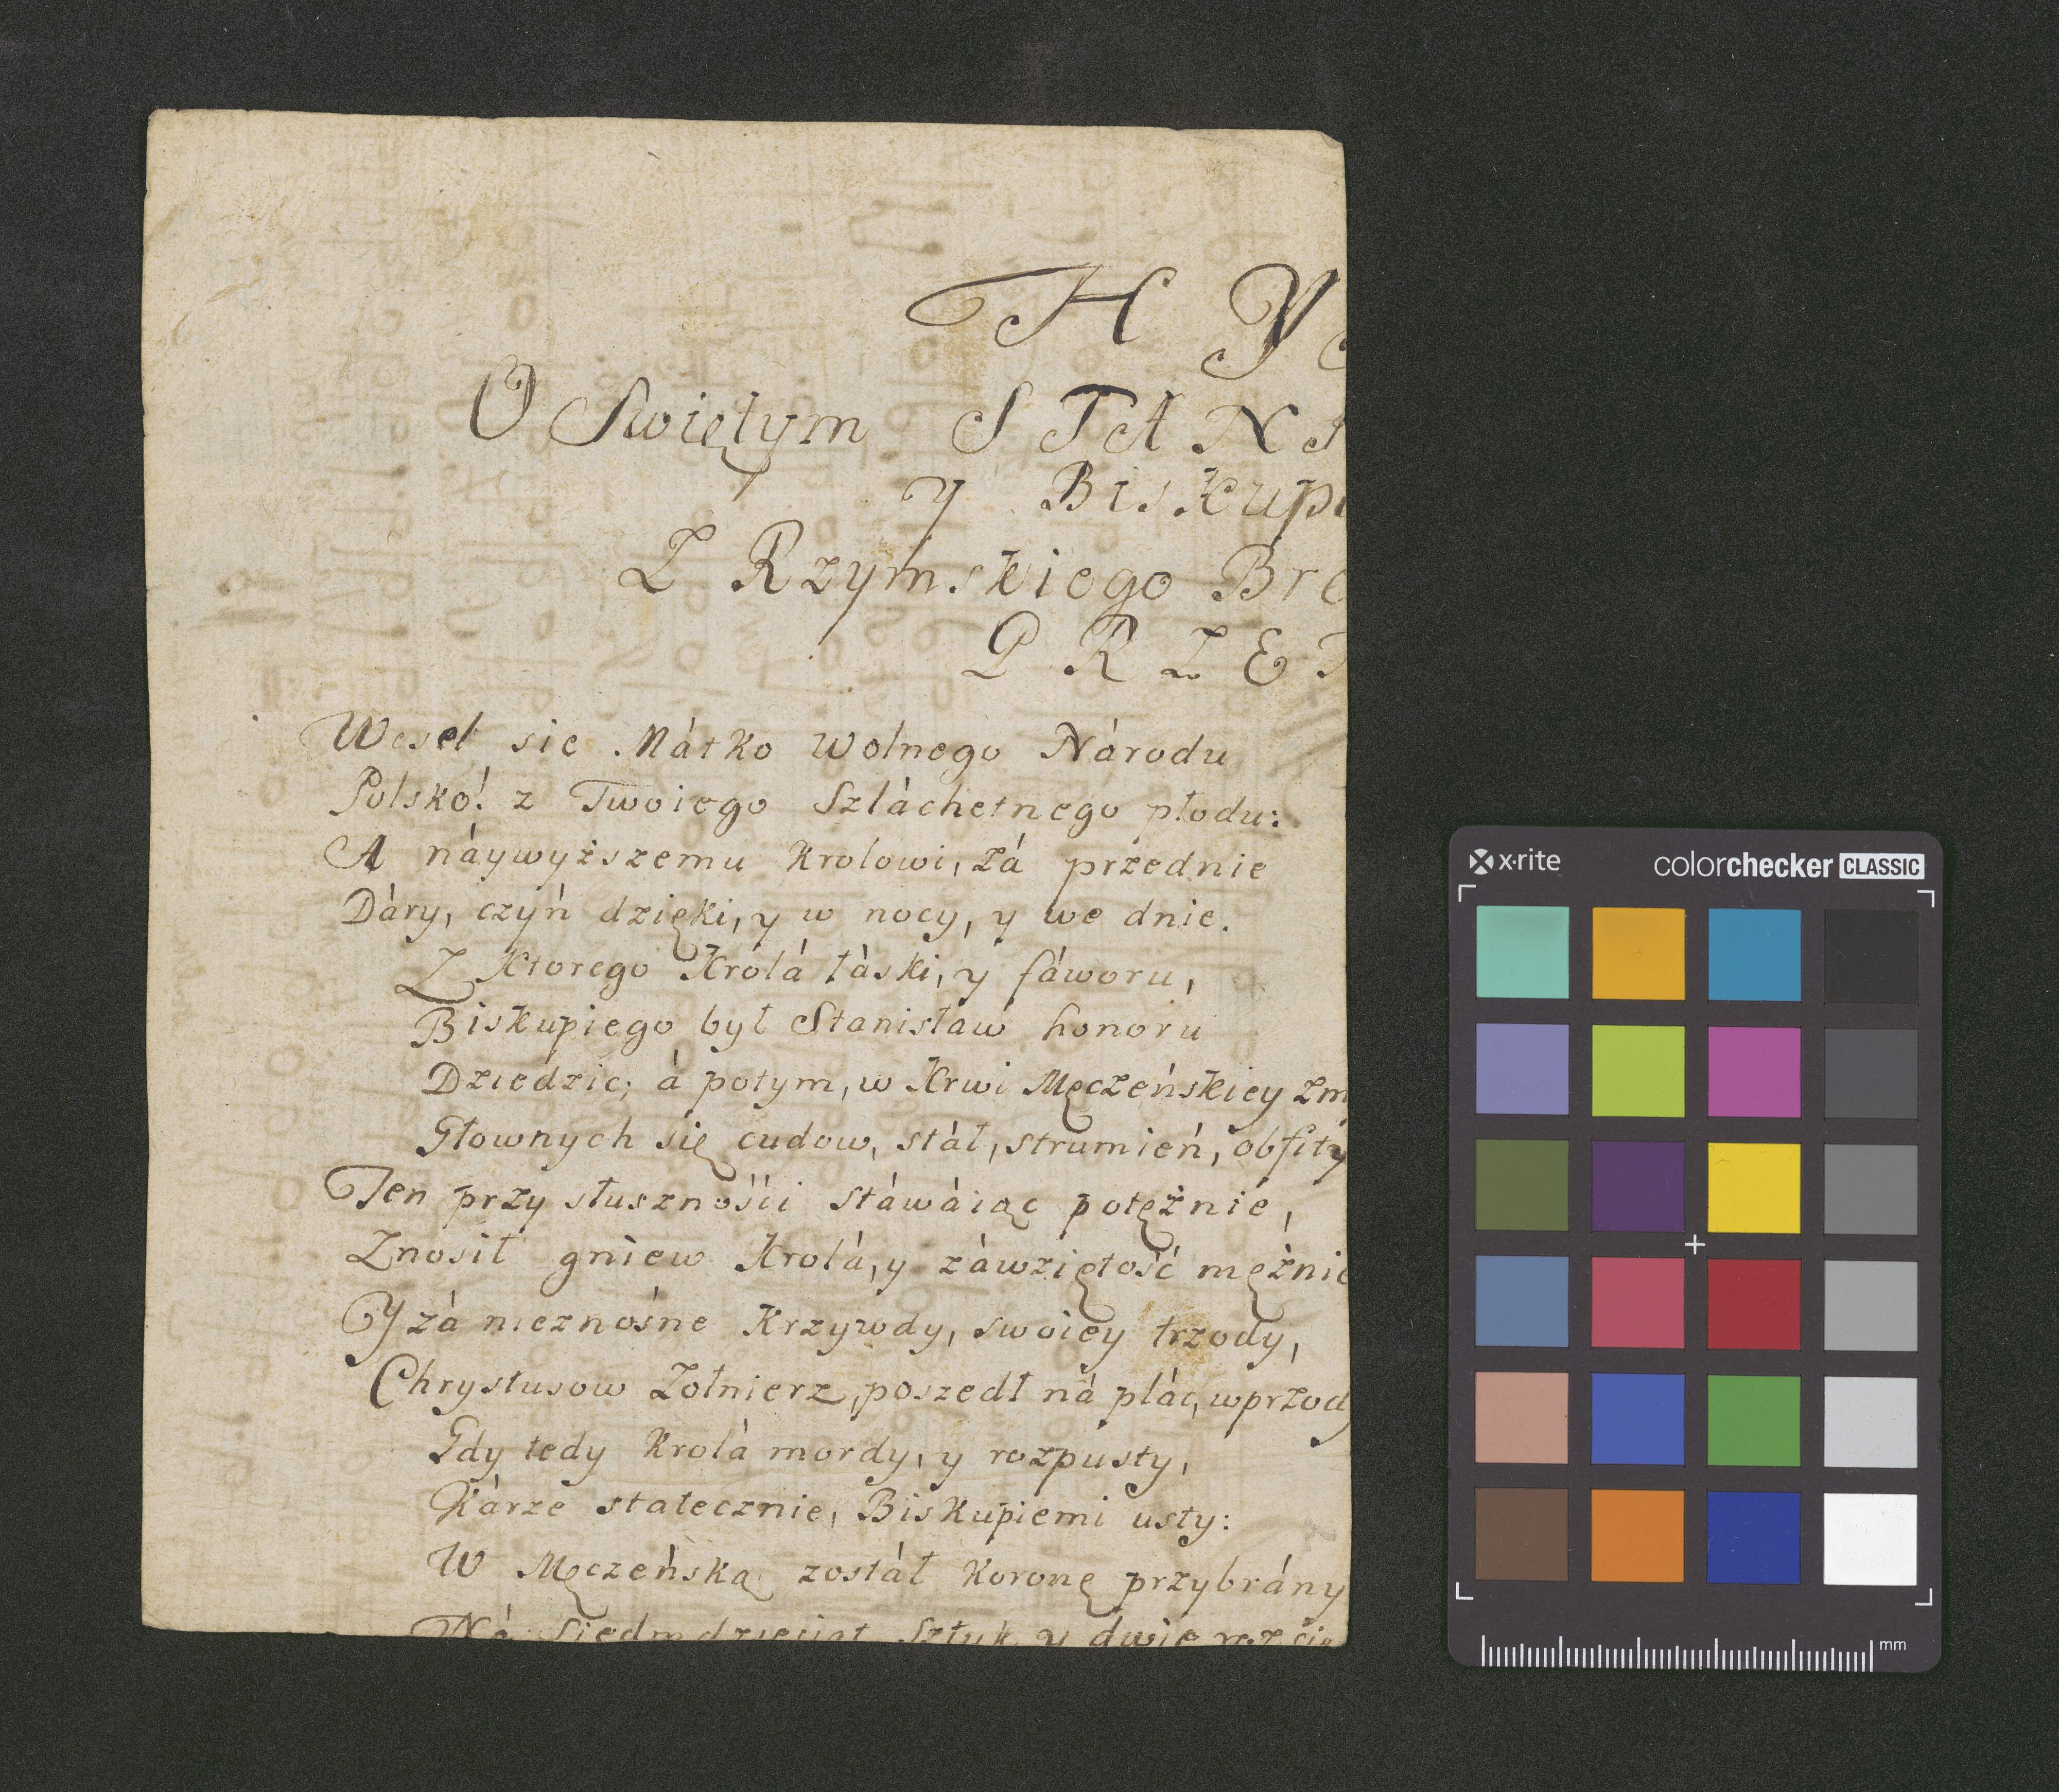 H Y
O Swiętym STAN
y Biskup
Z Rzymskiego Bre
P R Z E
Wesel sie Mátko wolnego Národu
Polsko! z Twoiego Szláchetnego płodu:
A náywyższemu Krolowi, zá przednie
Dáry, czyń dzięki, y w nocy, y we dnie.
Z Ktorego Krolá łáski, y fáworu,
Biskupiego był Stanisław honoru
Dziedzic; á potym, w Krwi Męczeńskiey zm
Głownych się cudow, stáł, strumień, obfity
Ten przy słusznośći stáwáiąc potężnie,
Znosił gniew Krolá, y záwziętość mężnie
Y zá nieznośne Krzywdy, swoiey trzody,
Chrystusow Zołnierz, poszedł ná plác, wprzody
Gdy tedy Krolá mordy, y rozpusty,
Kárze statecznie, Biskupiemi usty:
W Męczeńską zostáł Koronę przybrány
Ná siedmdziesiąt sztuk y dwie
x·rite colorchecker CLASSIC
mm